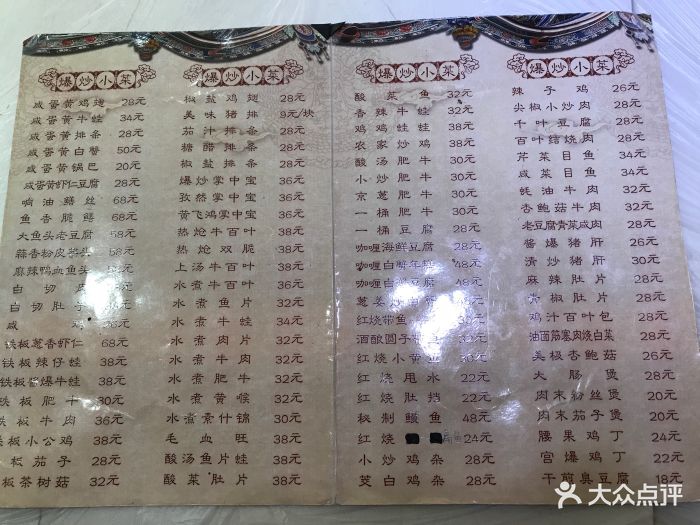 爆炒小菜
咸蛋黄鸡翅 28元
咸蛋黄牛蛙 34元
咸蛋黄排条 28元
咸蛋黄白蟹 50元
咸蛋黄锅巴 20元
咸蛋黄虾仁豆腐 28元
响油鳝丝 68元
鱼香脆鳝 68元
大鱼头老豆腐 58元
蒜香粉皮芋头 58元
麻辣鸭血鱼头
白切
白切肚子
咸鸡 36元
铁板葱香虾仁 68元
铁板辣仔蛙 38元
铁板酱爆牛蛙 38元
铁板肥牛 30元
铁板牛肉 32元
铁板小公鸡 38元
板茄子 28元
板茶树菇 32元
爆炒小菜
椒盐鸡翅 28元
美味猪排 9元/块
茄汁排条 28元
糖醋排条 28元
椒盐排条 28元
爆炒掌中宝 36元
孜然掌中宝 36元
黄飞鸿掌中宝 36元
热炝牛百叶 36元
热炝双脆 38元
上汤牛百叶 38元
水煮牛百叶 36元
水煮鱼片 32元
水煮牛蛙 34元
水煮肉片 32元
水煮牛肉 32元
水煮肥牛 32元
水煮黄喉 32元
水煮素什锦 30元
毛血旺 38元
酸汤鱼片蛙 38元
酸菜肚片 38元
爆炒小菜
酸菜鱼 32元
香辣牛蛙 32元
鸡鸡蛙蛙 38元
农家炒鸡 38元
酸汤肥牛 30元
小炒肥牛 30元
京葱肥牛 30元
一桶肥牛 30元
一桶豆腐 28元
咖喱海鲜豆腐 28元
咖喱白蟹年糕 48元
咖喱白蟹豆腐 48元
葱姜炒白蟹 48元
红烧带鱼
酒酿圆子带鱼
红烧小黄鱼 30元
红烧甩水 22元
红烧肚挡 22元
秘制鳗鱼 48元
红烧 24元
小炒鸡杂 28元
茭白鸡杂 28元
爆炒小菜
辣子鸡 26元
尖椒小炒肉 28元
千叶豆腐 28元
百叶结烧肉 28元
芹菜目鱼 34元
咸菜目鱼 34元
蚝油牛肉 32元
杏鲍菇牛肉 32元
老豆腐青菜咸肉 28元
酱爆猪肝 26元
清炒猪肝 30元
麻辣肚片 28元
青椒肚片 28元
鸡汁百叶包 28元
油面筋塞肉烧白菜 28元
美极杏鲍菇 26元
大肠煲 28元
肉末粉丝煲 20元
肉末茄子煲 20元
腰果鸡丁 24元
宫爆鸡丁 22元
干煎臭豆腐 18元
大众点评